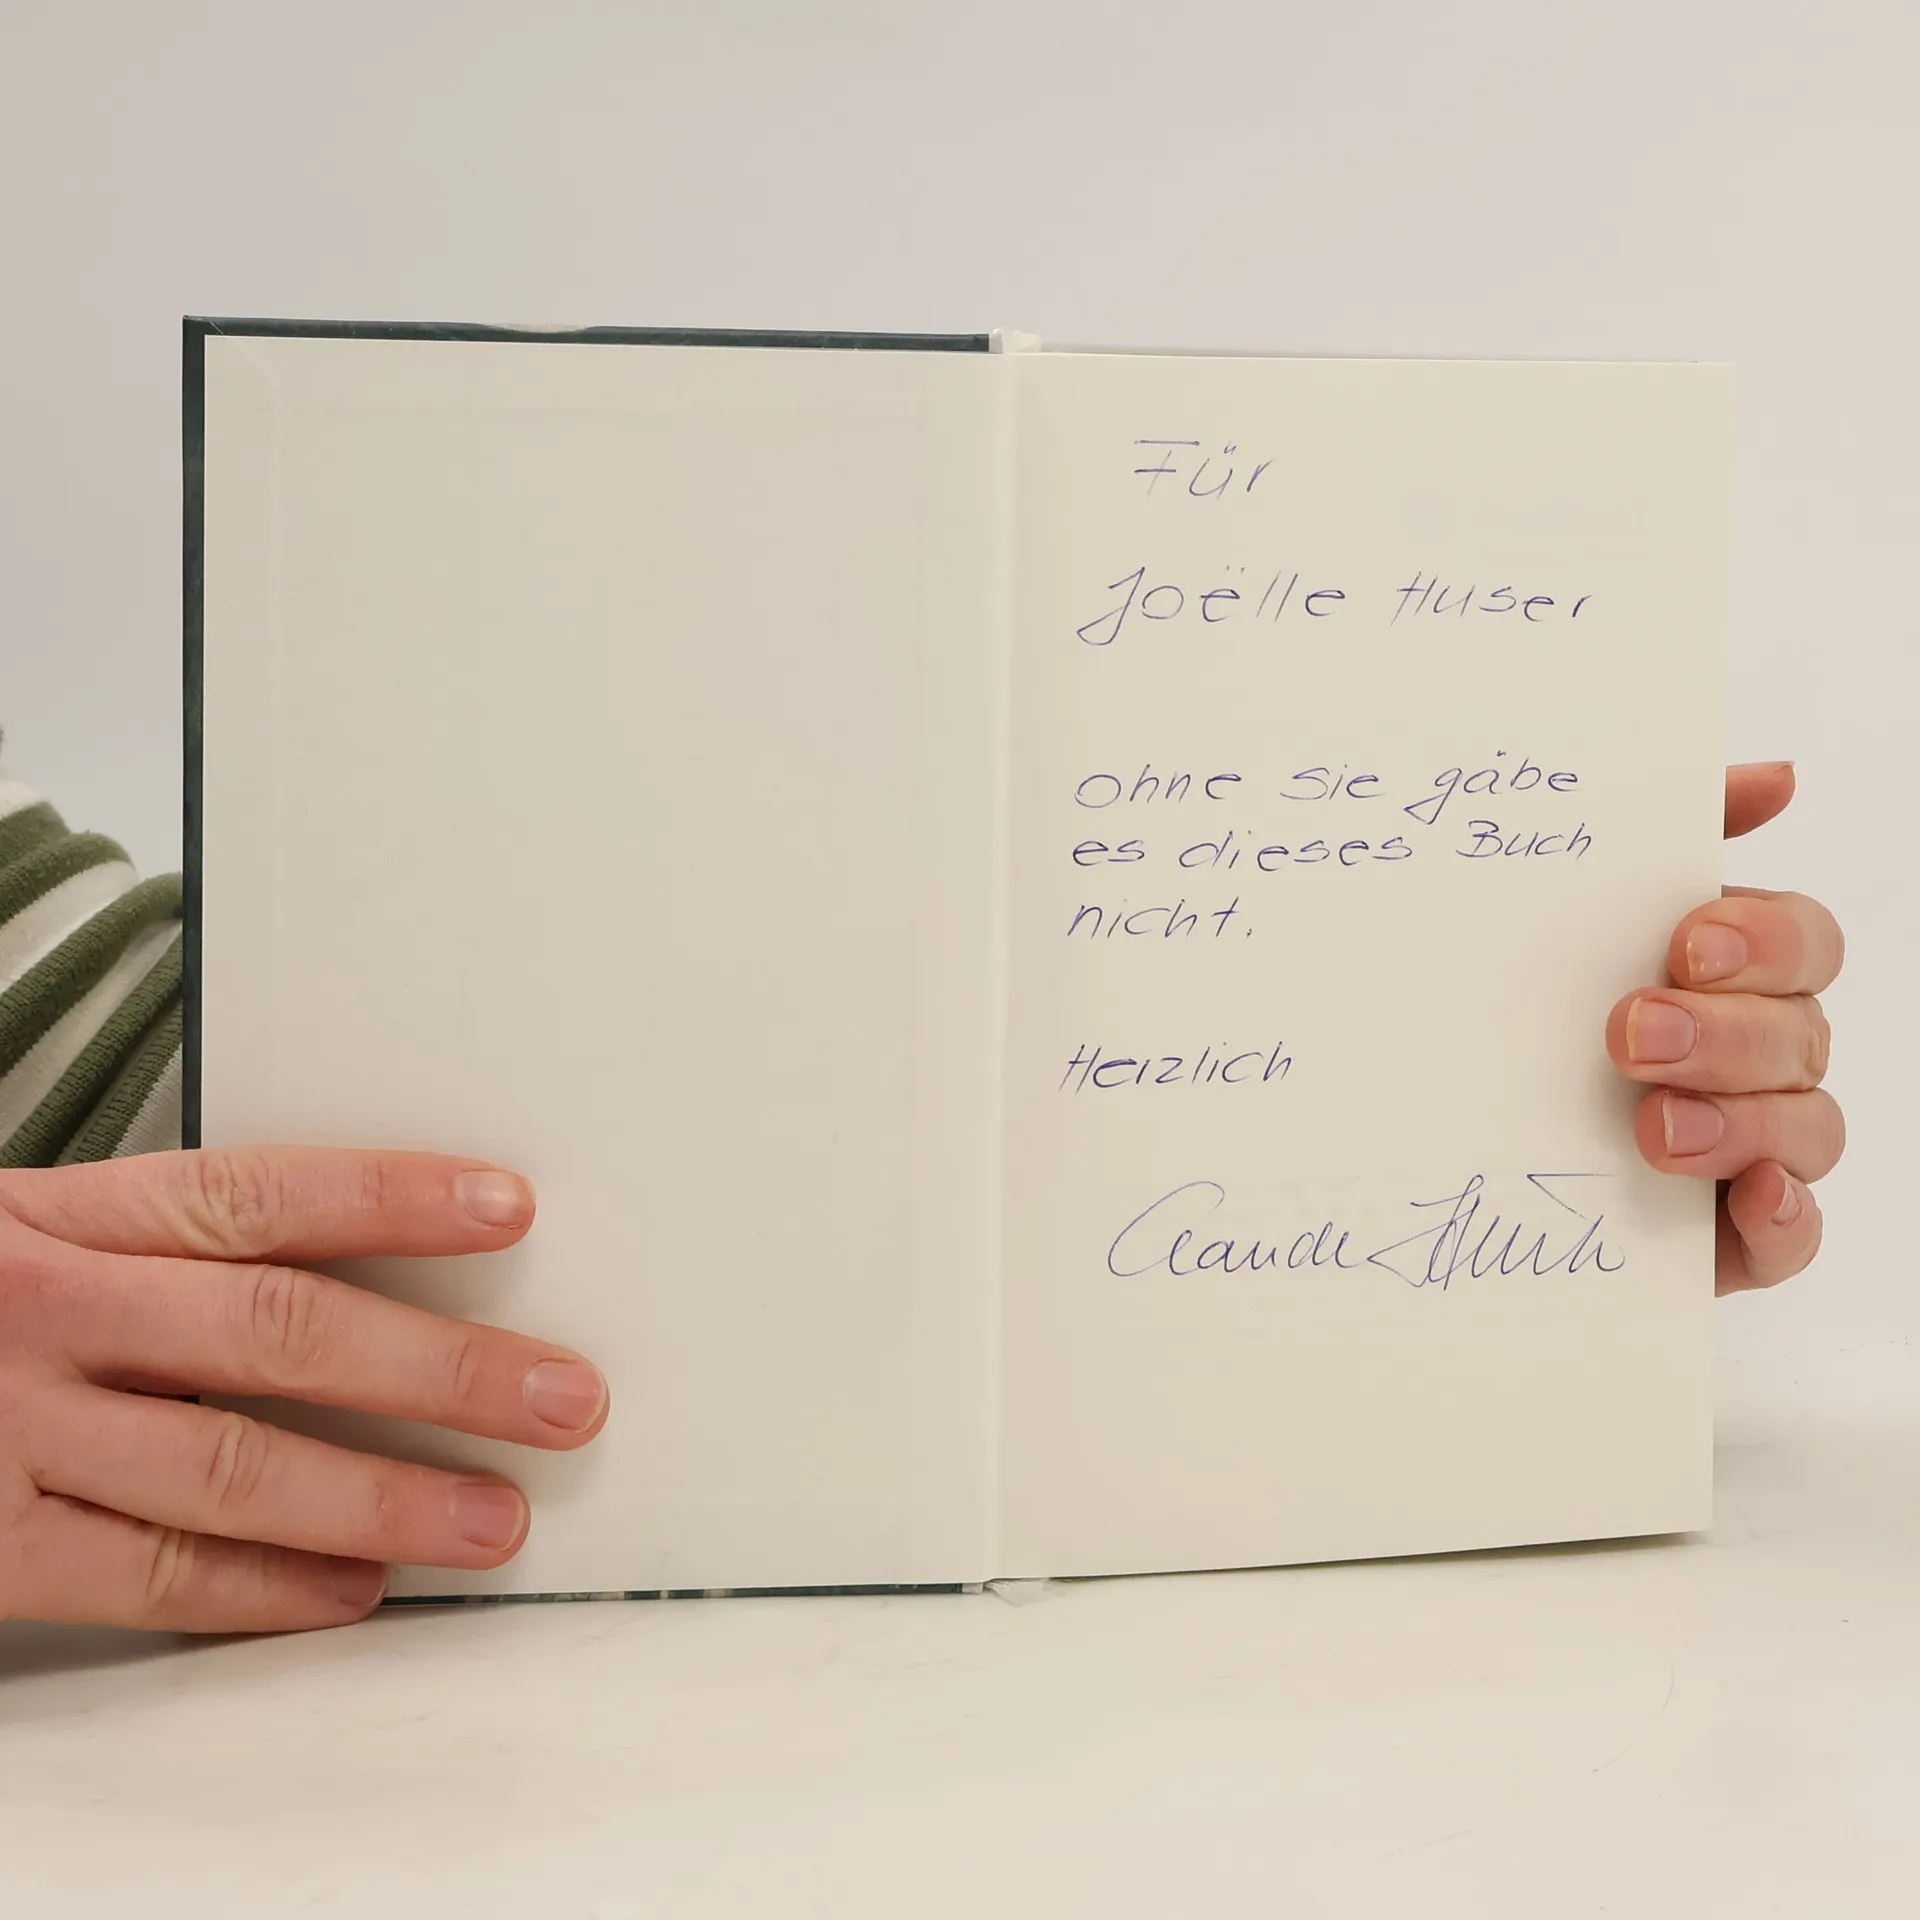 Für
Joëlle Huser
ohne sie gäbe
es dieses Buch
nicht.
Herzlich
Claude